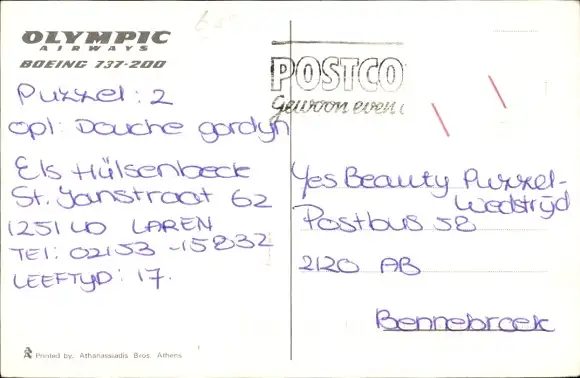 OLYMPIC
AIRWAYS
BOEING 737-200
POSTCO
Gewoon even
Puzzel: 2
opl: Douche gordijn
Els Hülsenbeck
St. Janstraat 62
1251 LD LAREN
Tel: 02153-15832
LEEFTIJD: 17.
Yes Beauty Puzzel-
Wedstrijd
Postbus 58
2120 AB
Bennebroek
Printed by. Athanassiadis Bros. Athens